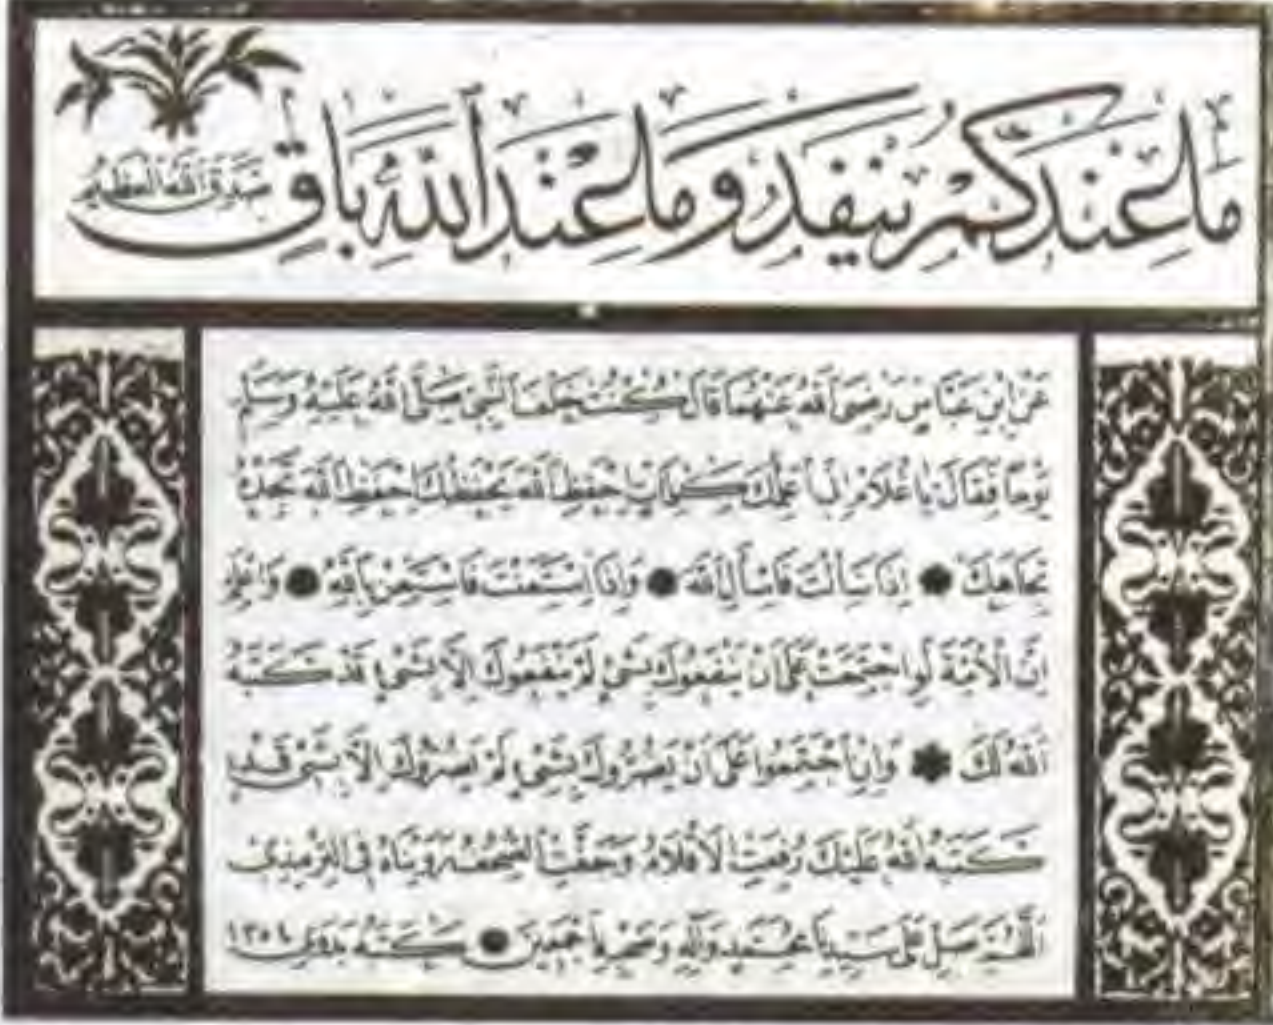 ما عندكم ينفد وما عند الله باق
صدق الله العظيم
عَنْ ابْنِ عَبَّاسٍ رَضِيَ اللهُ عَنْهُمَا قَالَ كُنْتُ خَلْفَ النَّبِيِّ صَلَّى اللهُ عَلَيْهِ وَسَلَّمَ
يَوْمًا فَقَالَ يَا غُلَامُ إِنِّي أُعَلِّمُكَ كَلِمَاتٍ احْفَظِ اللهَ يَحْفَظْكَ احْفَظِ اللهَ تَجِدْهُ
تجَاهَكَ ● إِذَا سَأَلْتَ فَاسْأَلِ اللهَ ● وَإِذَا اسْتَعَنْتَ فَاسْتَعِنْ بِاللهِ ● وَاعْلَمْ
اَنَّ الْأُمَّةَ لَوِ اجْتَمَعَتْ عَلَى أَنْ يَنْفَعُوكَ بِشَيْءٍ لَمْ يَنْفَعُوكَ إِلَّا بِشَيْءٍ قَدْ كَتَبَهُ
اللهُ لَكَ ● وَإِنِ اجْتَمَعُوا عَلَى أَنْ يَضُرُّوكَ بِشَيْءٍ لَمْ يَضُرُّوكَ إِلَّا بِشَيْءٍ قَدْ
كَتَبَهُ اللهُ عَلَيْكَ رُفِعَتِ الْأَقْلَامُ وَجَفَّتِ الصُّحُفُ رَوَيْنَاهُ فِي التِّرْمِذِيِّ
اَللّٰهُمَّ صَلِّ عَلَى سَيِّدِنَا مُحَمَّدٍ وَآلِهِ وَصَحْبِهِ أَجْمَعِينَ ● كَتَبَهُ بَدَوِي